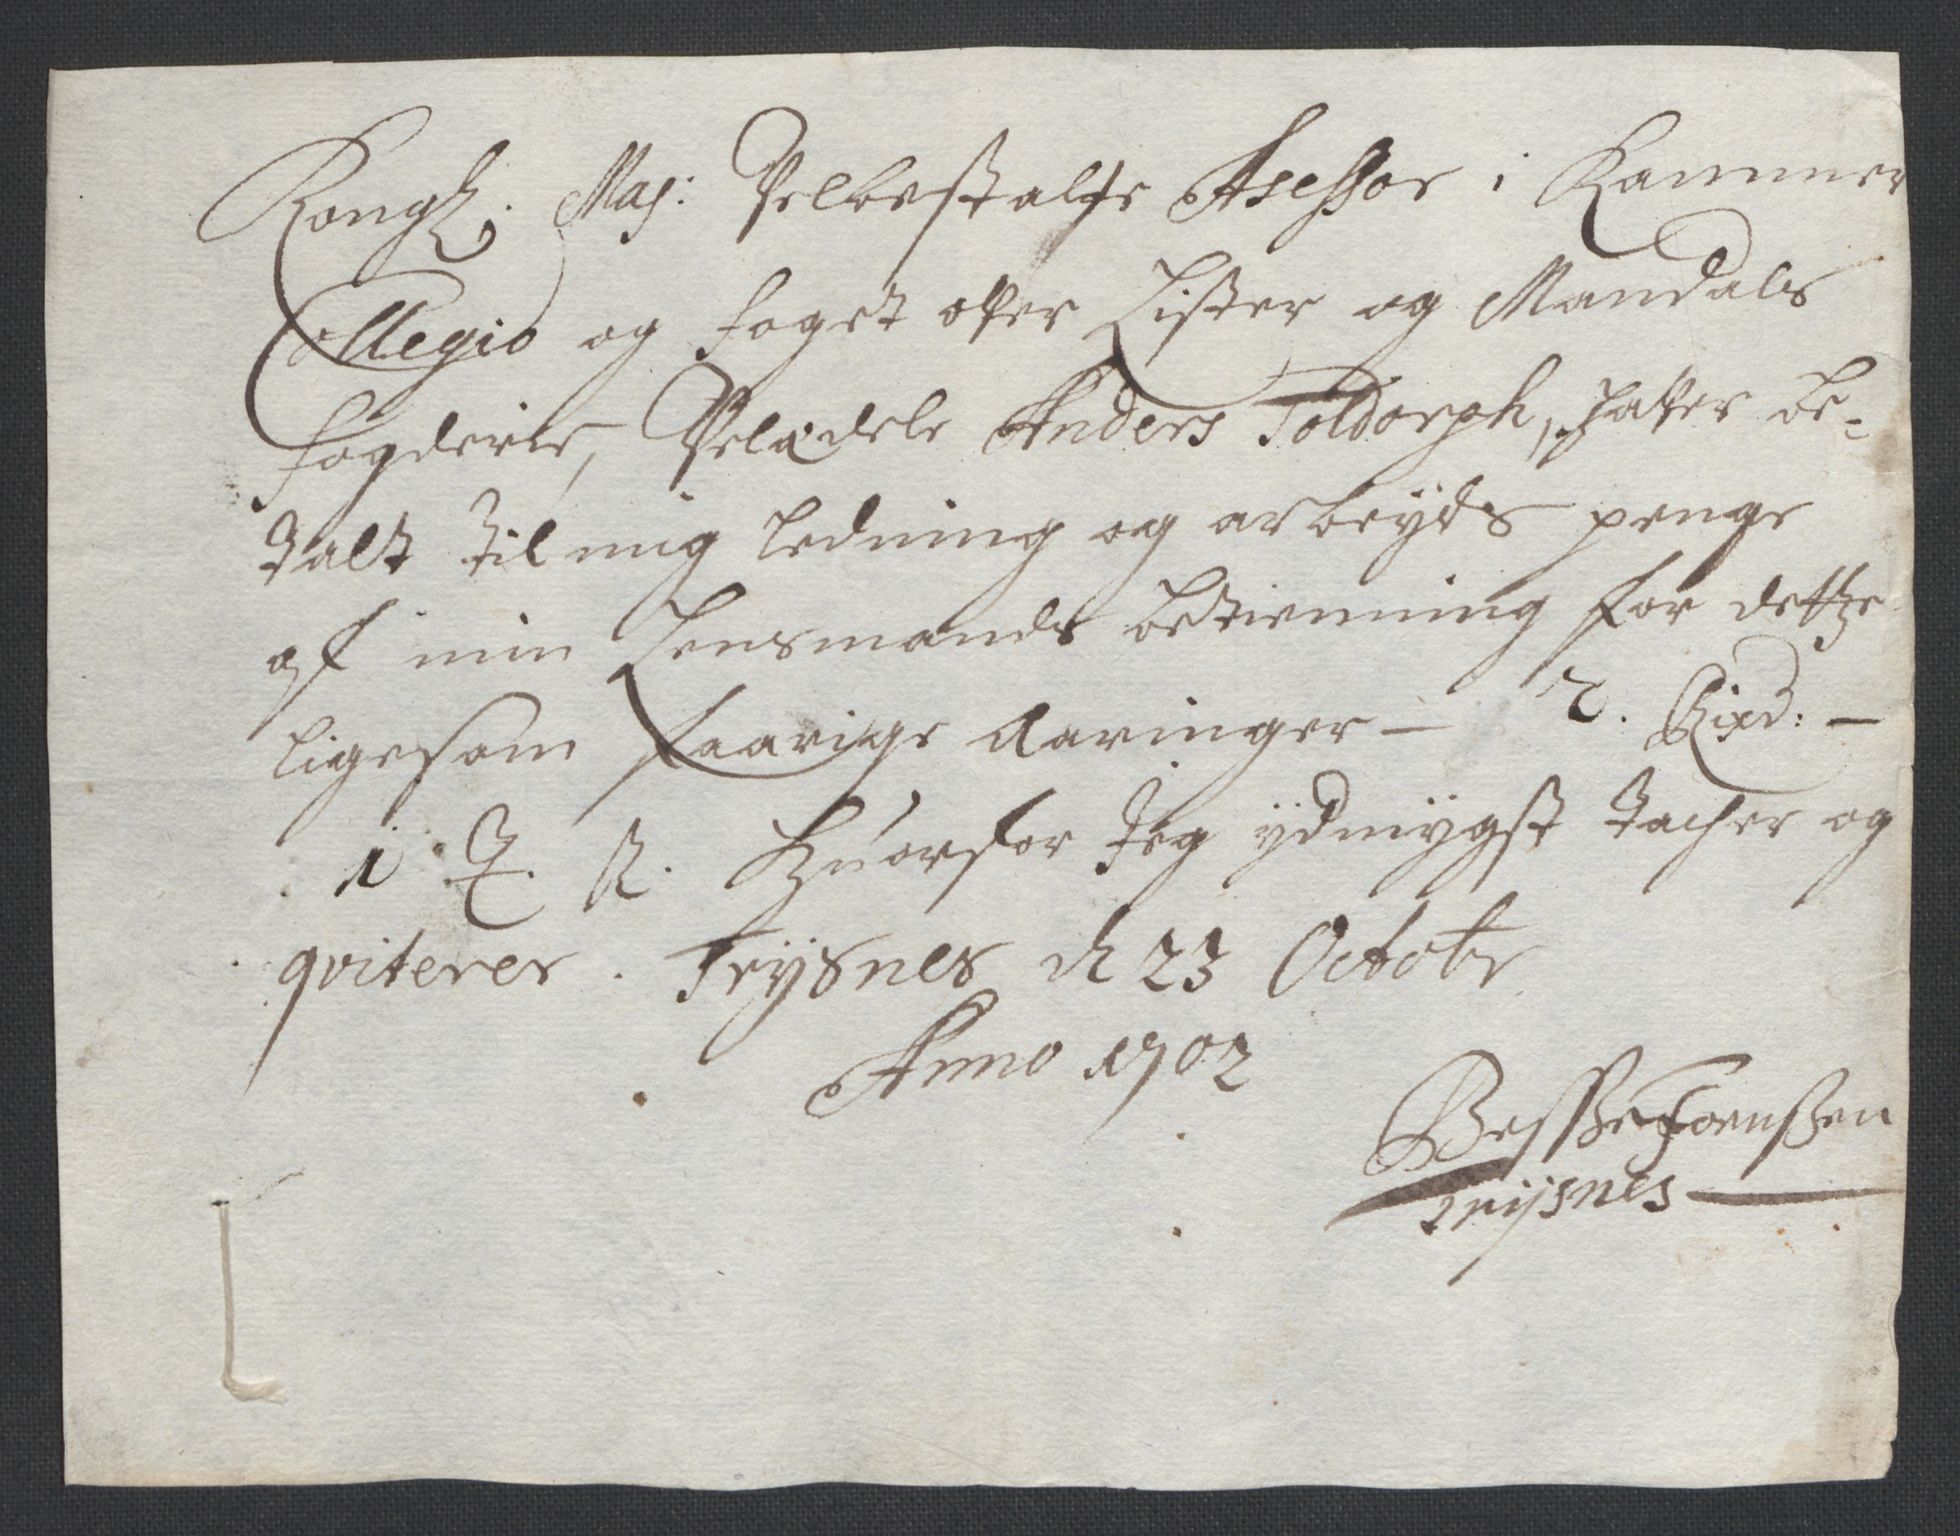 Kongl: Maj: Velbestalte Asessor i Kammer
Collegio og foget ofver Lister og Mandals
fogderie, Velædele Anders Toldorph, hafver be-
talt til mig ledning og arbeyds penge
af min Lensmands betienning for dette
ligesom faarige Aaringer — 2. Rixd: —
1 Hvorfor Jeg ydmygst tacher og
qviterer. Treysnes d 23 Octobr
Anno 1702
Treysnes